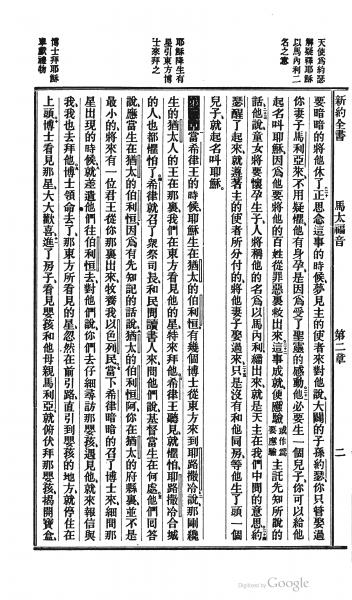 新約全書　馬太福音　第二章　二
天使爲約瑟
解釋耶穌
以馬內利二
名之意
要暗暗的將他休了正思念這事的時候夢見主的使者來對他說大闢的子孫約瑟你只管娶過
你妻子馬利亞來不用疑懼他有身孕是因爲受了聖靈的感動他必要生一個兒子你可以給他
起名叫耶穌因爲他要將他的百姓從罪惡裏救出來這事成就便應驗或作爲要應驗主託先知所說的
話他說童女將要懷孕生子人將稱他的名爲以馬內利繙出來就是天主在我們中間的意思約
瑟醒了起來就遵著主的使者所分付的將他妻子娶過來只是沒有和他同房等他生了頭一個
兒子就起名叫耶穌
耶穌降生有
星引東方博
士來拜之
第二章當希律王的時候耶穌生在猶太的伯利恒有幾個博士從東方來到耶路撒冷說那剛纔
生的猶太人的王在那裏我們在東方看見他的星特來拜他希律王聽見就懼怕耶路撒冷合城
的人也都懼怕了希律就召了衆祭司長和民間讀書人來問他們說基督當生在何處他們回答
說應當生在猶太的伯利恒因爲有先知記的話說猶太的伯利恒阿你在猶太的府縣裏並不是
最小的將來有一位君王從你那裏出來牧養我以色列民當下希律暗暗的召了博士來細問那
星出現的時候就差遣他們往伯利恒去對他們說你們去仔細尋訪那嬰孩遇見他就來報信與
我我也去拜他博士領命去了那東方所看見的星忽然在前引路直引到嬰孩的地方就停住在
博士拜耶穌
畢獻禮物
上頭博士看見那星大大歡喜進了房子看見嬰孩和他母親馬利亞就俯伏拜那嬰孩揭開寶盒
Digitized by Google